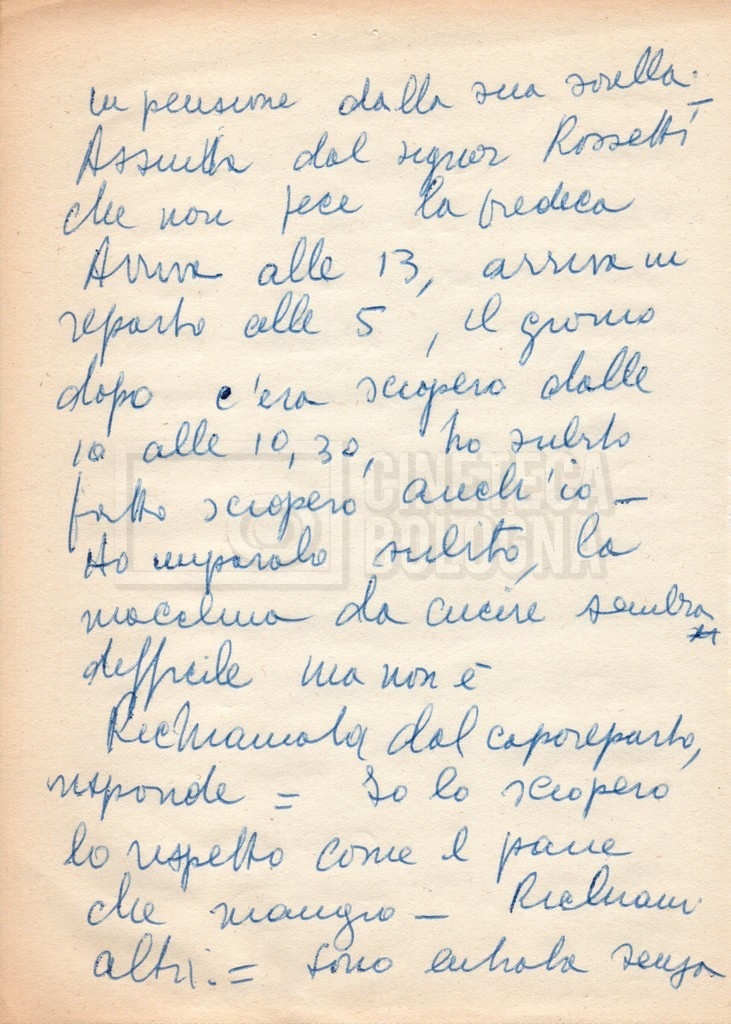 in pensione dalla sua sorella.
Assunta dal signor Rossetti
che non fece la predica
Arriva alle 13, arriva in
reparto alle 5, il giorno
dopo c'era sciopero dalle
10 alle 10,30, ho subito
fatto sciopero anch'io –
Ho imparato subito, la
macchina da cucire sembra
difficile ma non è
Richiamata dal caporeparto,
risponde = Io lo sciopero
lo rispetto come il pane
che mangio – Richiami
altri. = Sono entrata senza
CINETECA
BOLOGNA